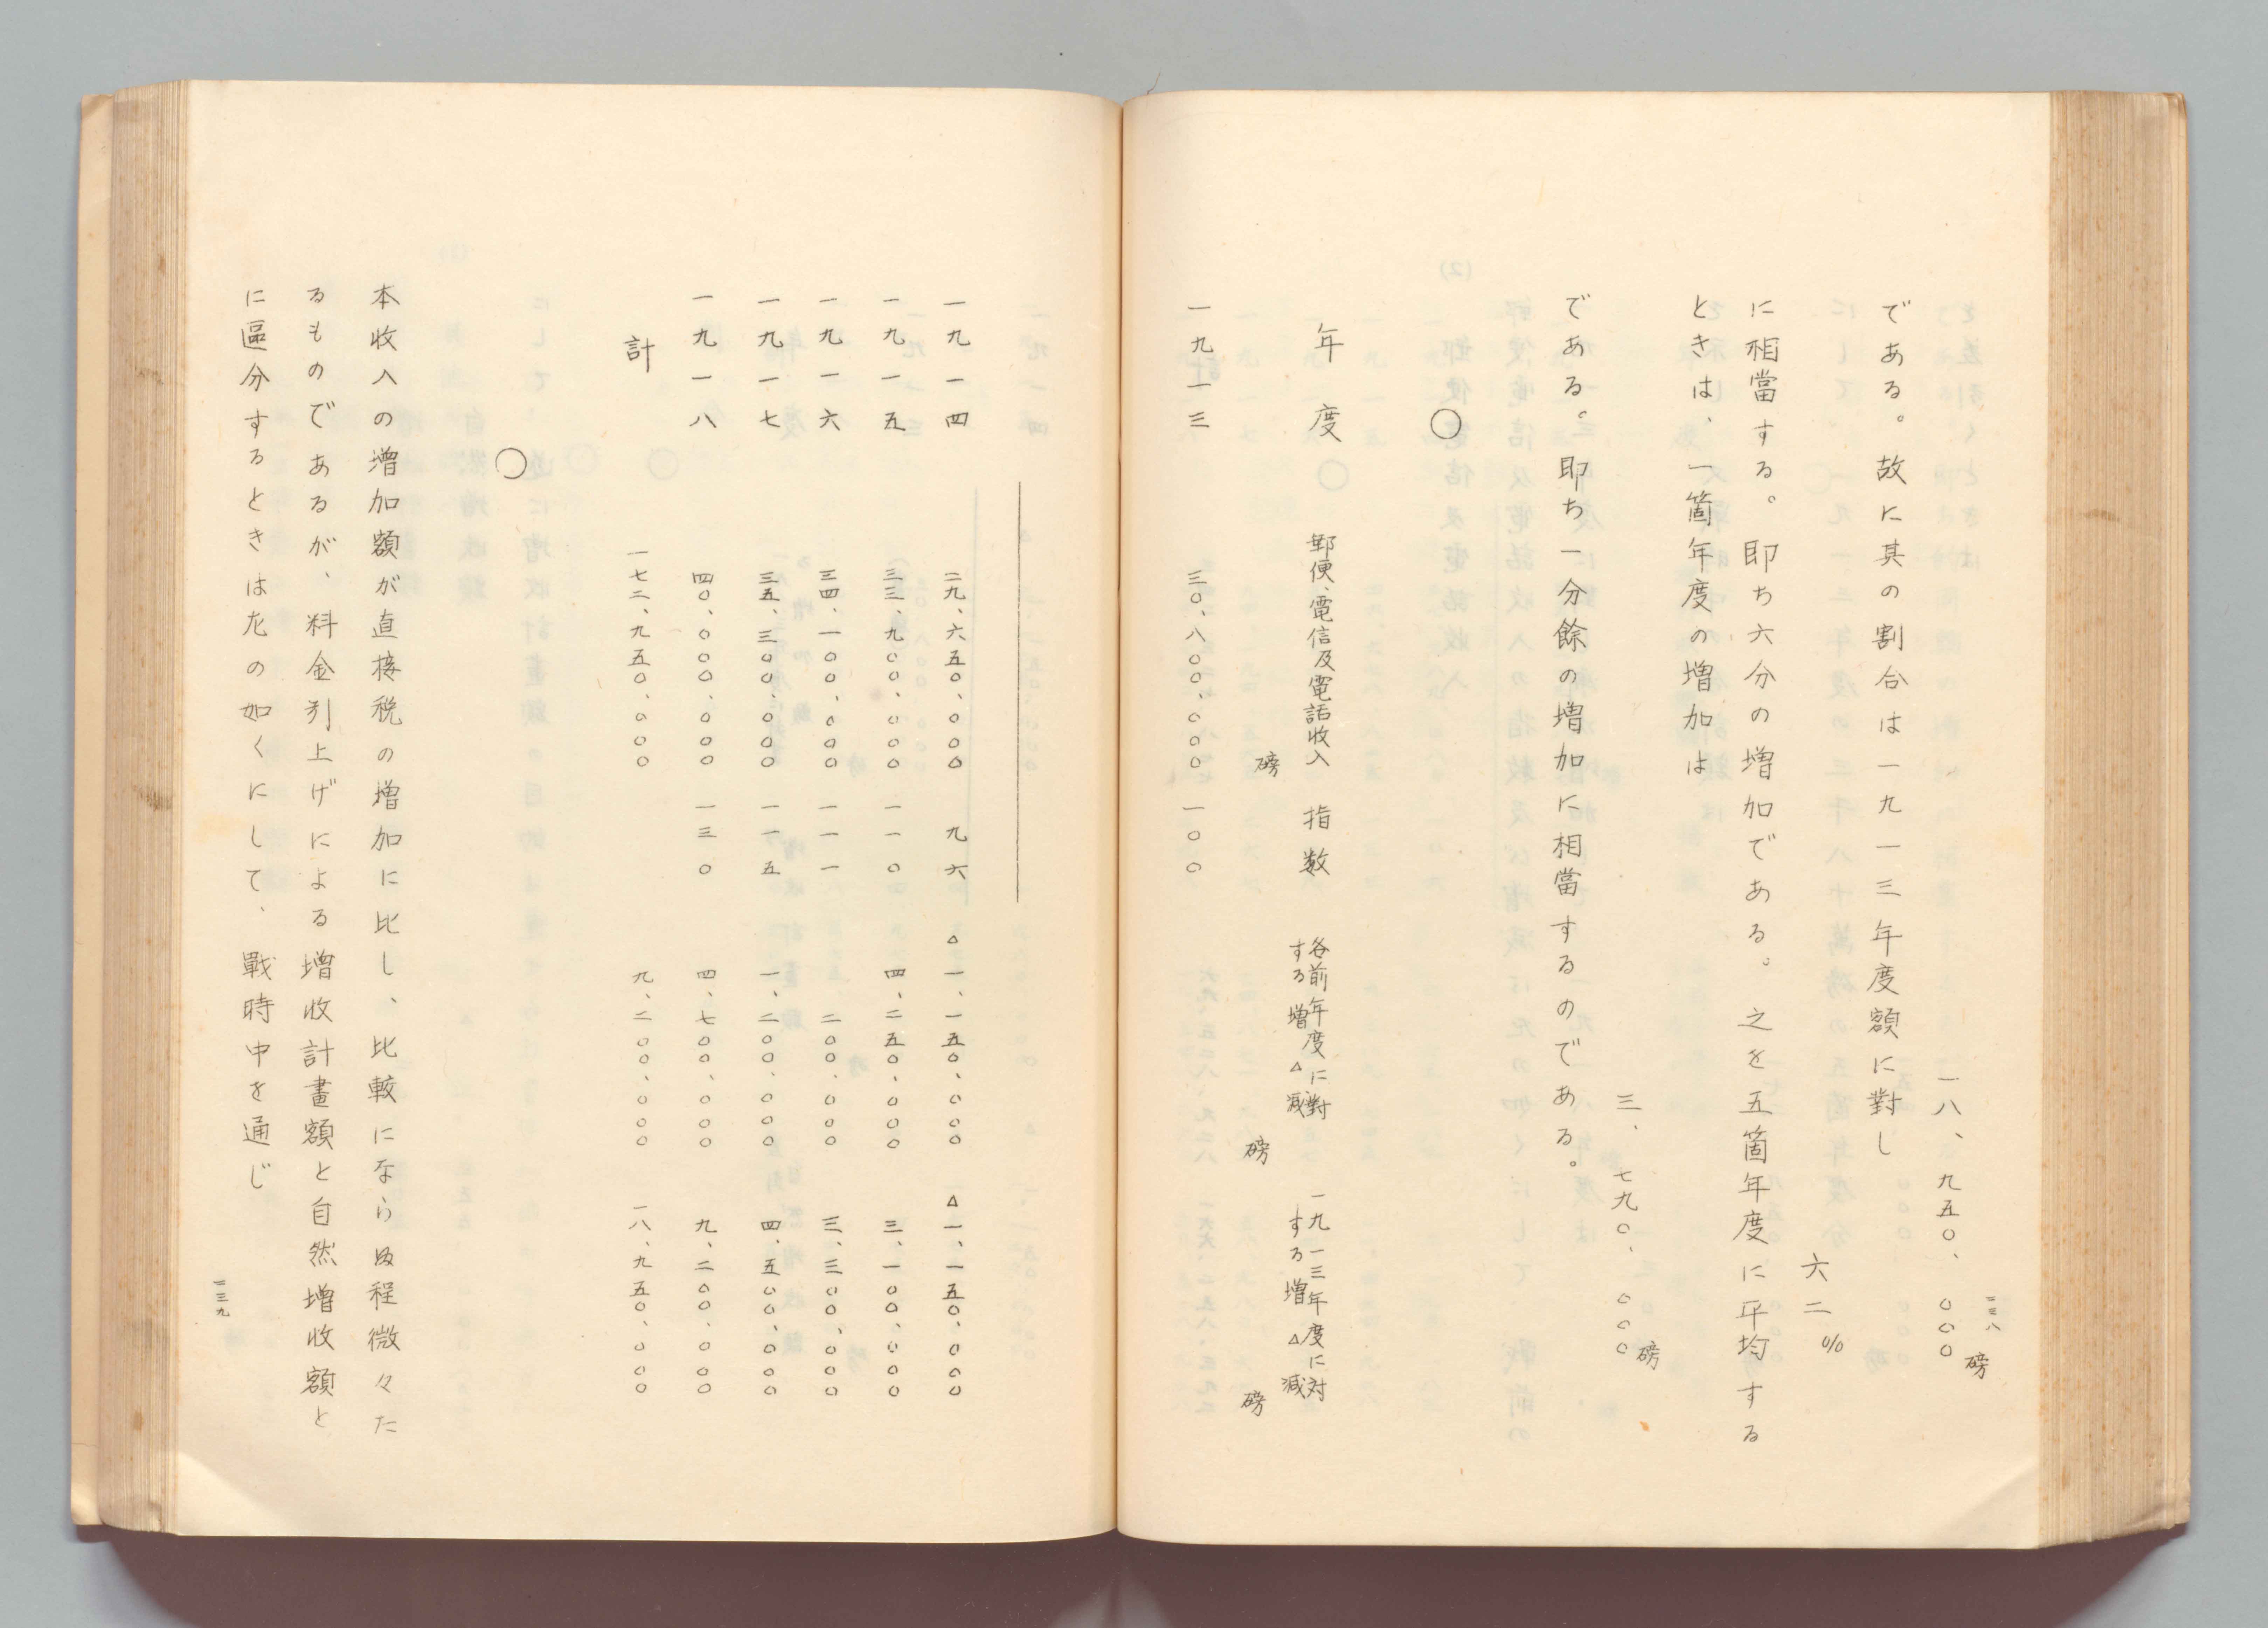 二三八
一八、九五〇、〇〇〇磅
である。故に其の割合は一九一三年度額に對し
六二%
に相當する。即ち六分の増加である。之を五箇年度に平均する
ときは、一箇年度の増加は
三、七九〇、〇〇〇磅
である。即ち一分餘の増加に相當するのである。
〇
年度 郵便、電信及電話收入 指数 各前年度に對する増△減 一九一三年度に対する増△減
磅 磅 磅
一九一三 三〇、八〇〇、〇〇〇 一〇〇
一九一四 二九、六五〇、〇〇〇 九六 △一、一五〇、〇〇〇 △一、一五〇、〇〇〇
一九一五 三三、九〇〇、〇〇〇 一一〇 四、二五〇、〇〇〇 三、一〇〇、〇〇〇
一九一六 三四、一〇〇、〇〇〇 一一一 二〇〇、〇〇〇 三、三〇〇、〇〇〇
一九一七 三五、三〇〇、〇〇〇 一一五 一、二〇〇、〇〇〇 四、五〇〇、〇〇〇
一九一八 四〇、〇〇〇、〇〇〇 一三〇 四、七〇〇、〇〇〇 九、二〇〇、〇〇〇
計 一七二、九五〇、〇〇〇 九、二〇〇、〇〇〇 一八、九五〇、〇〇〇
〇
本收入の増加額が直接税の増加に比し、比較にならぬ程微々た
るものであるが、料金引上げによる増收計畫額と自然増收額と
に區分するときは左の如くにして、戰時中を通じ
二三九